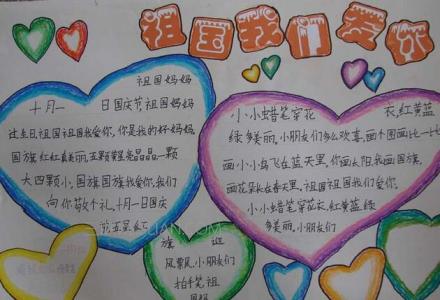 祖国我们爱你
祖国妈妈
十月一 日国庆节祖国妈妈
过生日祖国祖国我爱你,你是我的好妈妈
国旗红红真美丽,五颗星星亮晶晶一颗
大四颗小,国旗国旗我爱你,我们
向你敬个礼,十月一日国庆
小小蜡笔穿花 衣,红黄蓝
绿多美丽,小朋友们多么欢喜,画个图画比一比
画小小鸟飞在蓝天里,你画太阳,我画国旗,
画花朵长在春天里,祖国祖国我们爱你,
小小蜡笔穿花衣,红黄蓝绿
多美丽,小朋友们
旗
小朋友们
拍手笔,祖